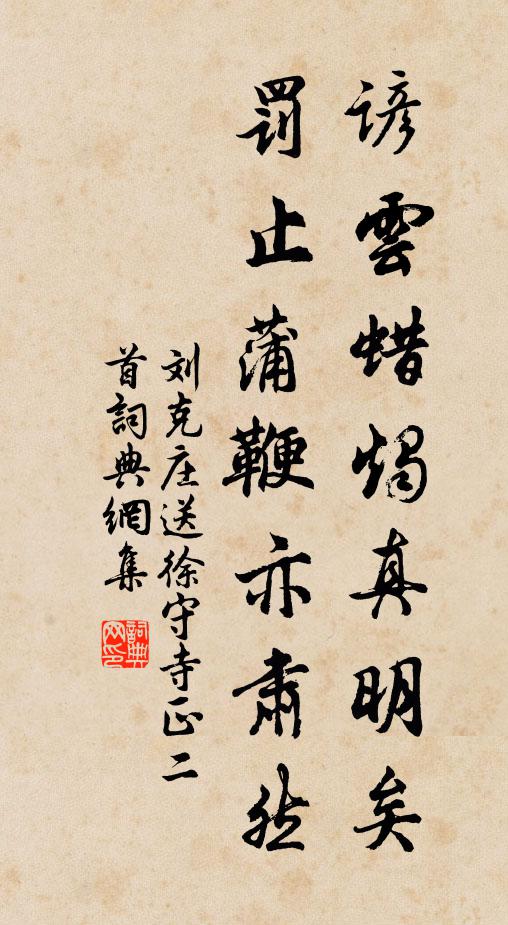 諺雲蜡燭真明矣
罰止蒲鞭亦肅然
刘克庄送徐守寺正二
首詞典網集
詞典網印